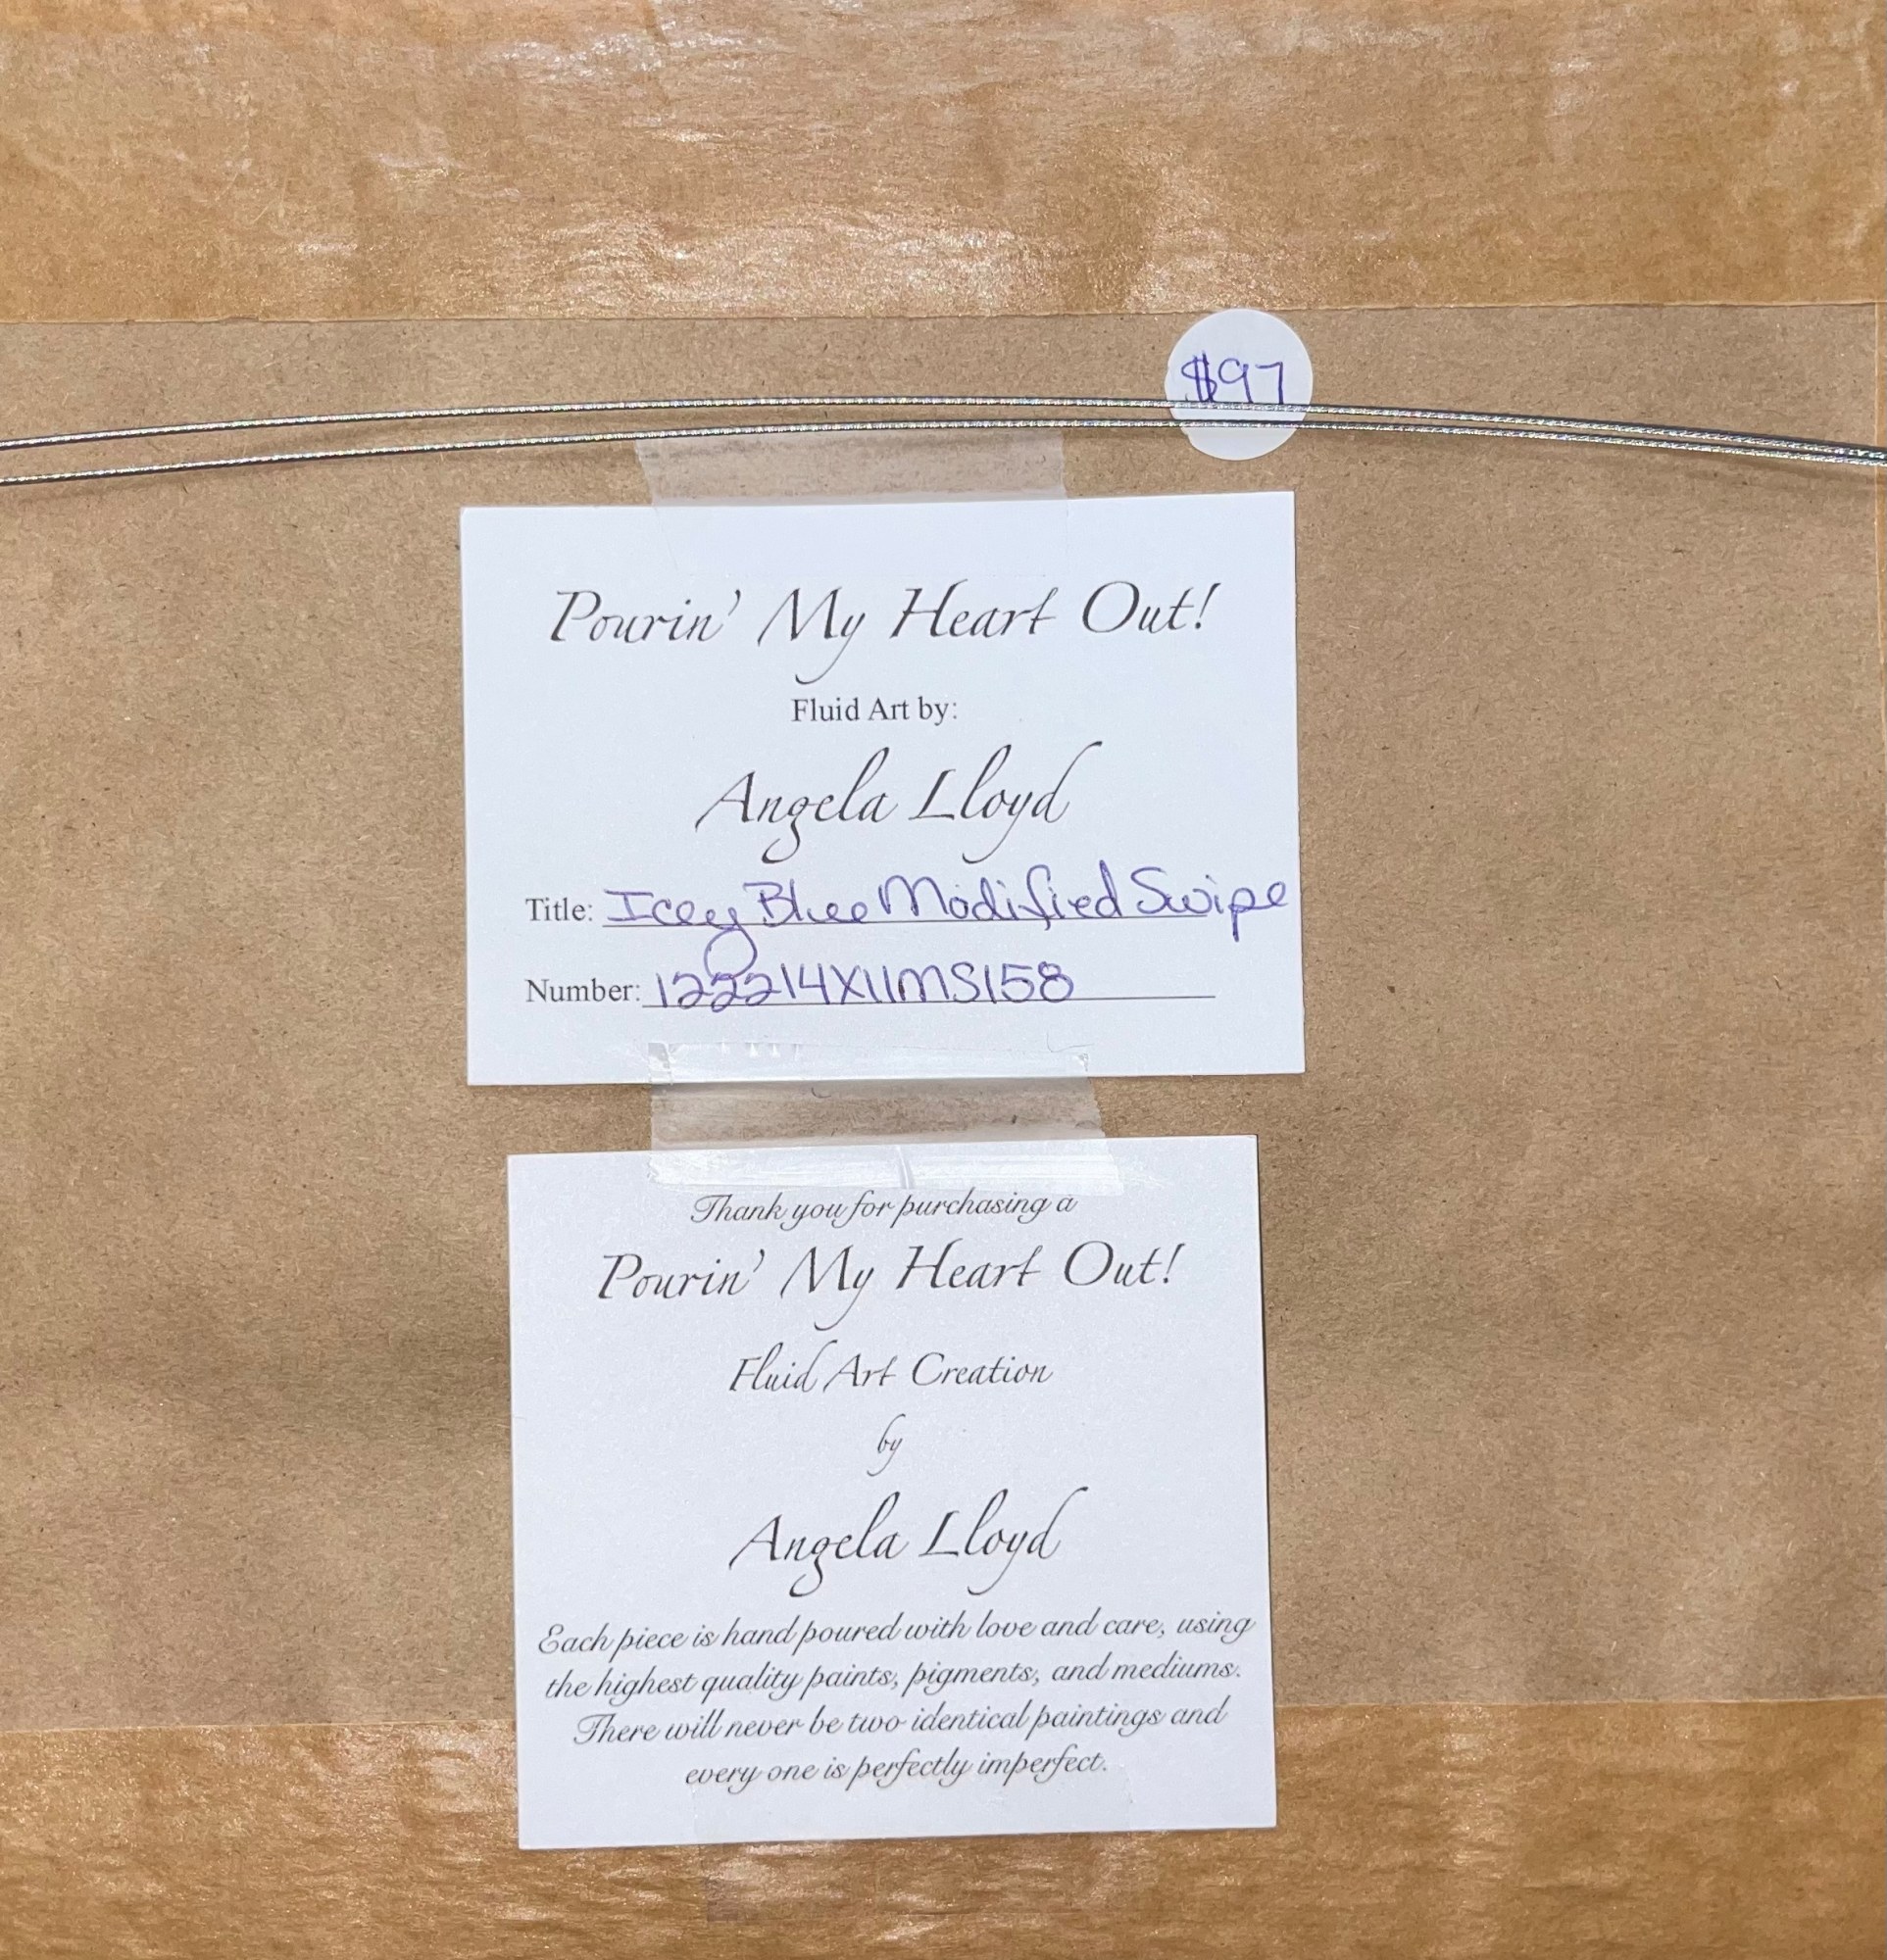 $97
Pourin' My Heart Out!
Fluid Art by:
Angela Lloyd
Title: Icey Blue Modified Swipe
Number: 122214X11MS158
Thank you for purchasing a
Pourin' My Heart Out!
Fluid Art Creation
by
Angela Lloyd
Each piece is hand poured with love and care, using
the highest quality paints, pigments, and mediums.
There will never be two identical paintings and
every one is perfectly imperfect.